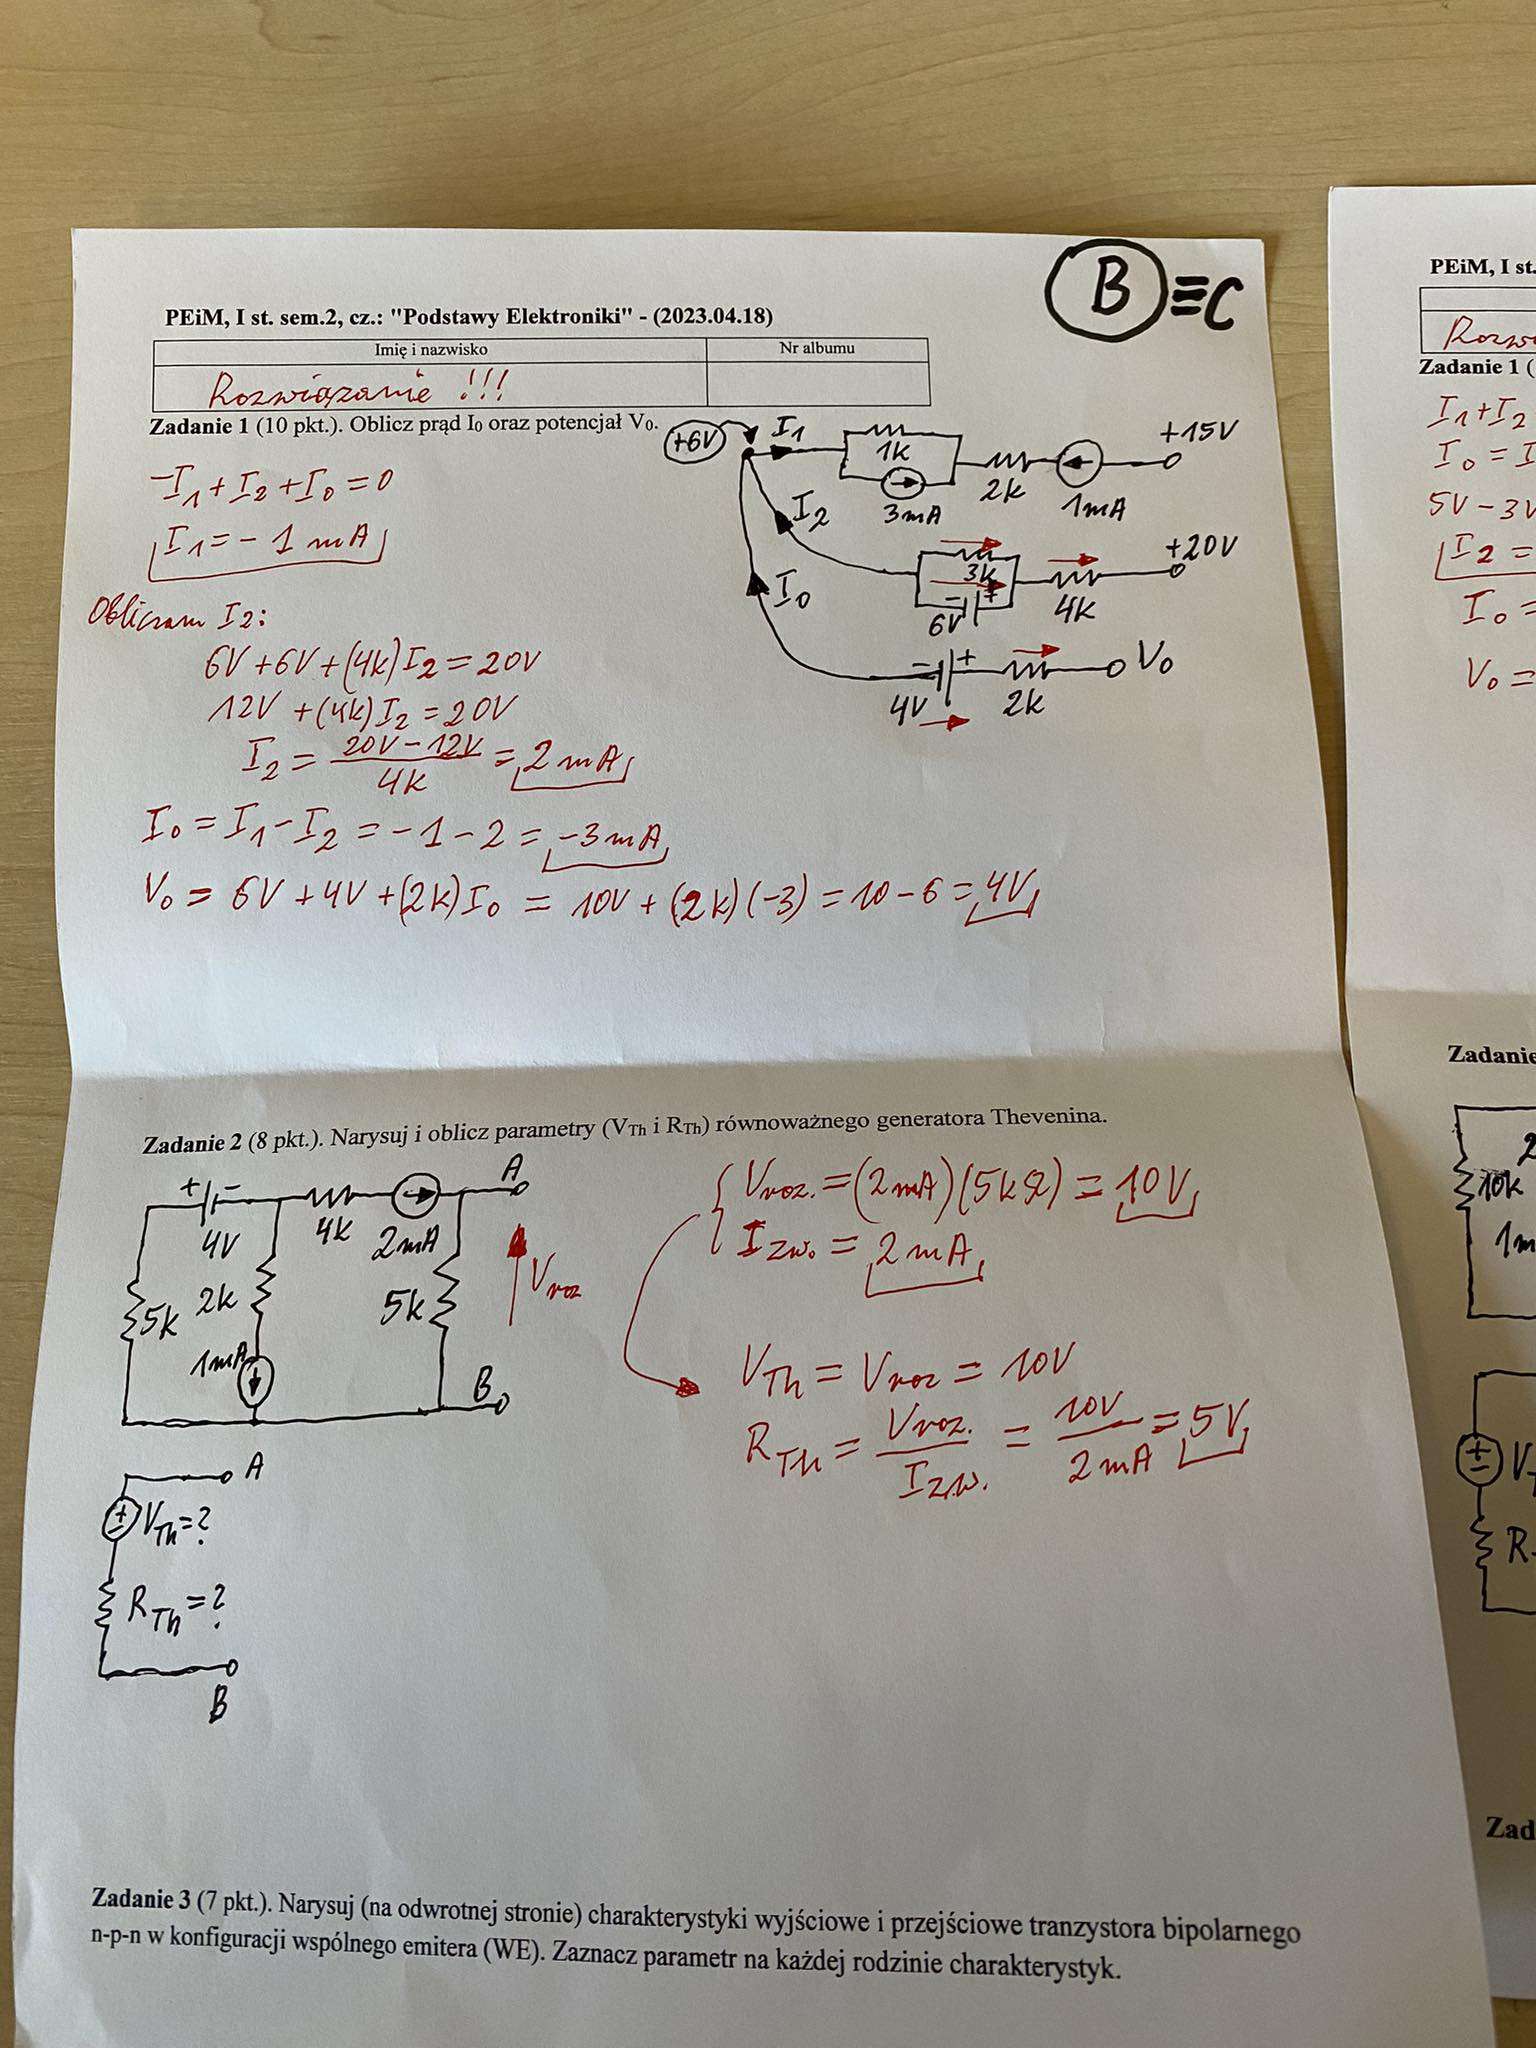 B ≡ C
PEiM, I st. sem.2, cz.: "Podstawy Elektroniki" - (2023.04.18)
Imię i nazwisko Nr albumu
Rozwiązanie !!!
Zadanie 1 (10 pkt.). Oblicz prąd I₀ oraz potencjał V₀.
+6V I₁ 1k 3mA 2k 1mA +15V
I₂ 3k − + 6V 4k +20V
I₀ − + 4V 2k V₀
−I₁ + I₂ + I₀ = 0
I₁ = − 1 mA
Obliczam I₂:
6V + 6V + (4k) I₂ = 20V
12V + (4k) I₂ = 20V
I₂ = 20V − 12V / 4k = 2 mA
I₀ = I₁ − I₂ = −1 − 2 = −3 mA
V₀ = 6V + 4V + (2k) I₀ = 10V + (2k)(−3) = 10 − 6 = 4V
Zadanie 2 (8 pkt.). Narysuj i oblicz parametry (VTh i RTh) równoważnego generatora Thevenina.
+ − 4V 4k 2mA A
5k 2k 1mA 5k Vroz
B
Vroz. = (2mA)(5kΩ) = 10V
Izw. = 2mA
VTh = Vroz = 10V
RTh = Vroz. / Izw. = 10V / 2mA = 5V
A
+ − VTh = ?
RTh = ?
B
Zadanie 3 (7 pkt.). Narysuj (na odwrotnej stronie) charakterystyki wyjściowe i przejściowe tranzystora bipolarnego
n-p-n w konfiguracji wspólnego emitera (WE). Zaznacz parametr na każdej rodzinie charakterystyk.
PEiM, I st.
Zadanie 1 (
I₁ + I₂
I₀ =
5V − 3V
I₂ =
I₀ =
V₀ =
Zadanie
10k
+ −